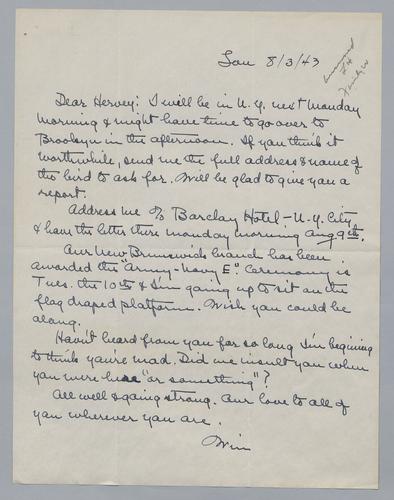 Lou 8/3/43
answered
Dear Hervey: I will be in N.Y. next Monday
morning & might have time to go over to
Brooklyn in the afternoon. If you think it
worthwhile, send me the full address & name of
the bird to ask for. Will be glad to give you a
report.
Address me c/o Barclay Hotel - N.Y. City
& have the letter there Monday morning Aug 9th.
Our New Brunswick branch has been
awarded the "Army-Navy E." Ceremony is
Tues. the 10th & I'm going up to sit on the
flag draped platform. Wish you could be
along.
Havn't heard from you for so long I'm begining
to think you're mad. Did me insult you when
you were here "or something"?
All well & going strong. Our love to all of
you wherever you are.
Win